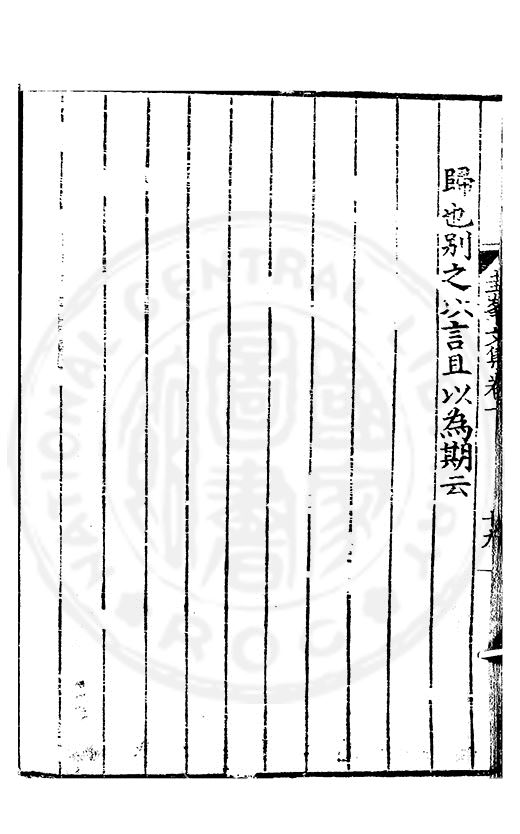 歸也别之以言且以為期云
文集卷一
十九
NATIONAL CENTRAL LIBRARY
ROC